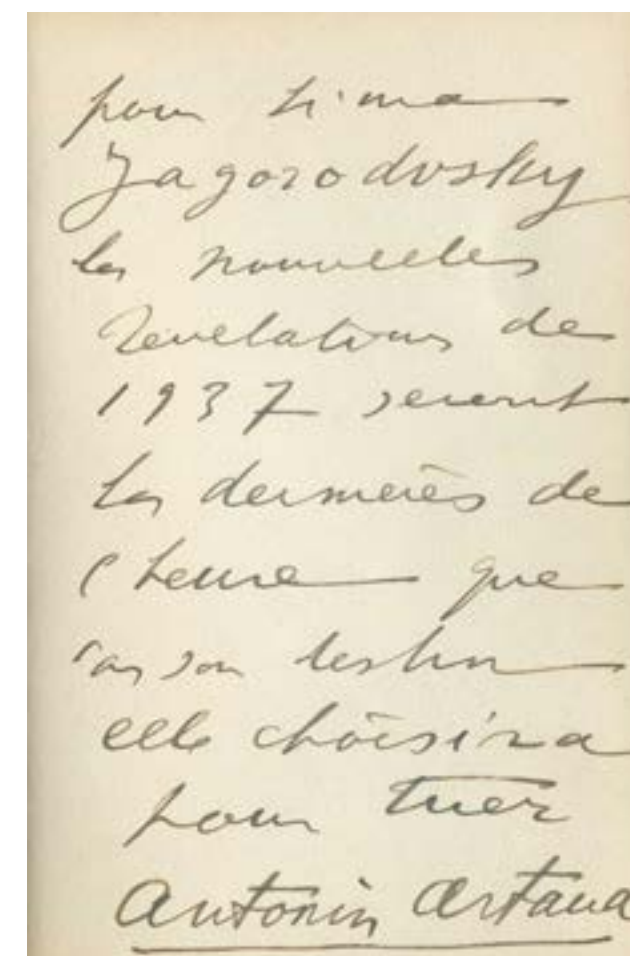 pour
Zagorodvsky
les nouvelles
révélations de
1937 seront
les dernières de
l'heure que
son destin
elle choisira
pour tuer
Antonin Artaud